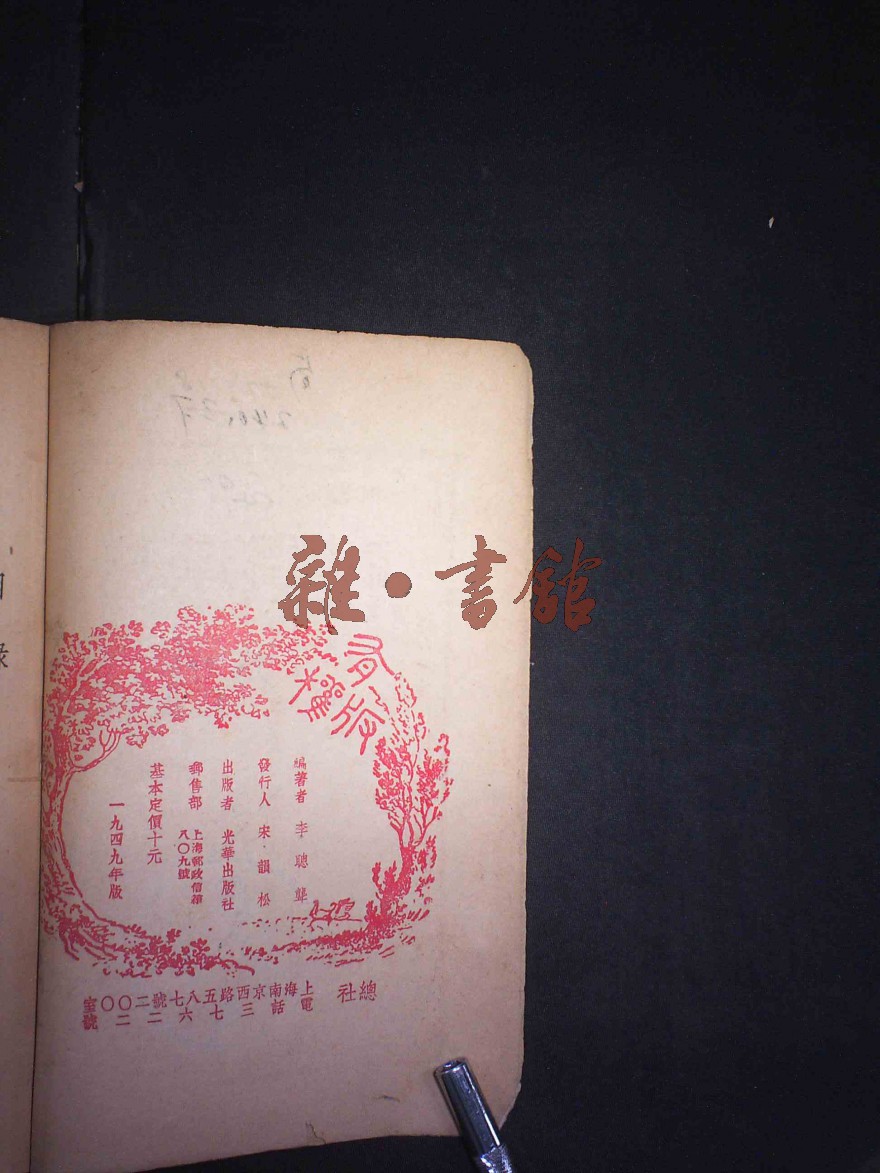 雜·書館
有版權
編著者 李聰聾
發行人 宋韻松
出版者 光華出版社
郵售部 上海郵政信箱
八〇九號
基本定價十元
一九四九年版
總社 上海南京西路五八七號二〇〇室
電話三七六二二號